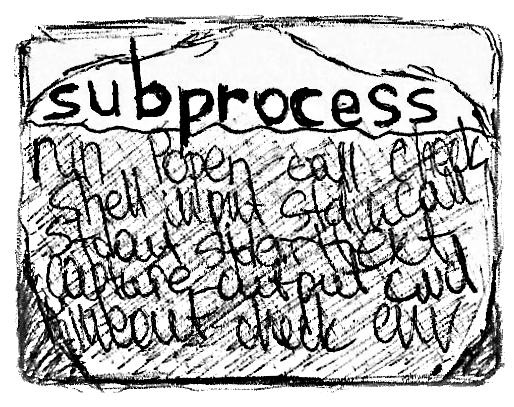 subprocess
run Popen call check
shell input stdin call
stdout stderr text
capture-output cwd
timeout check env